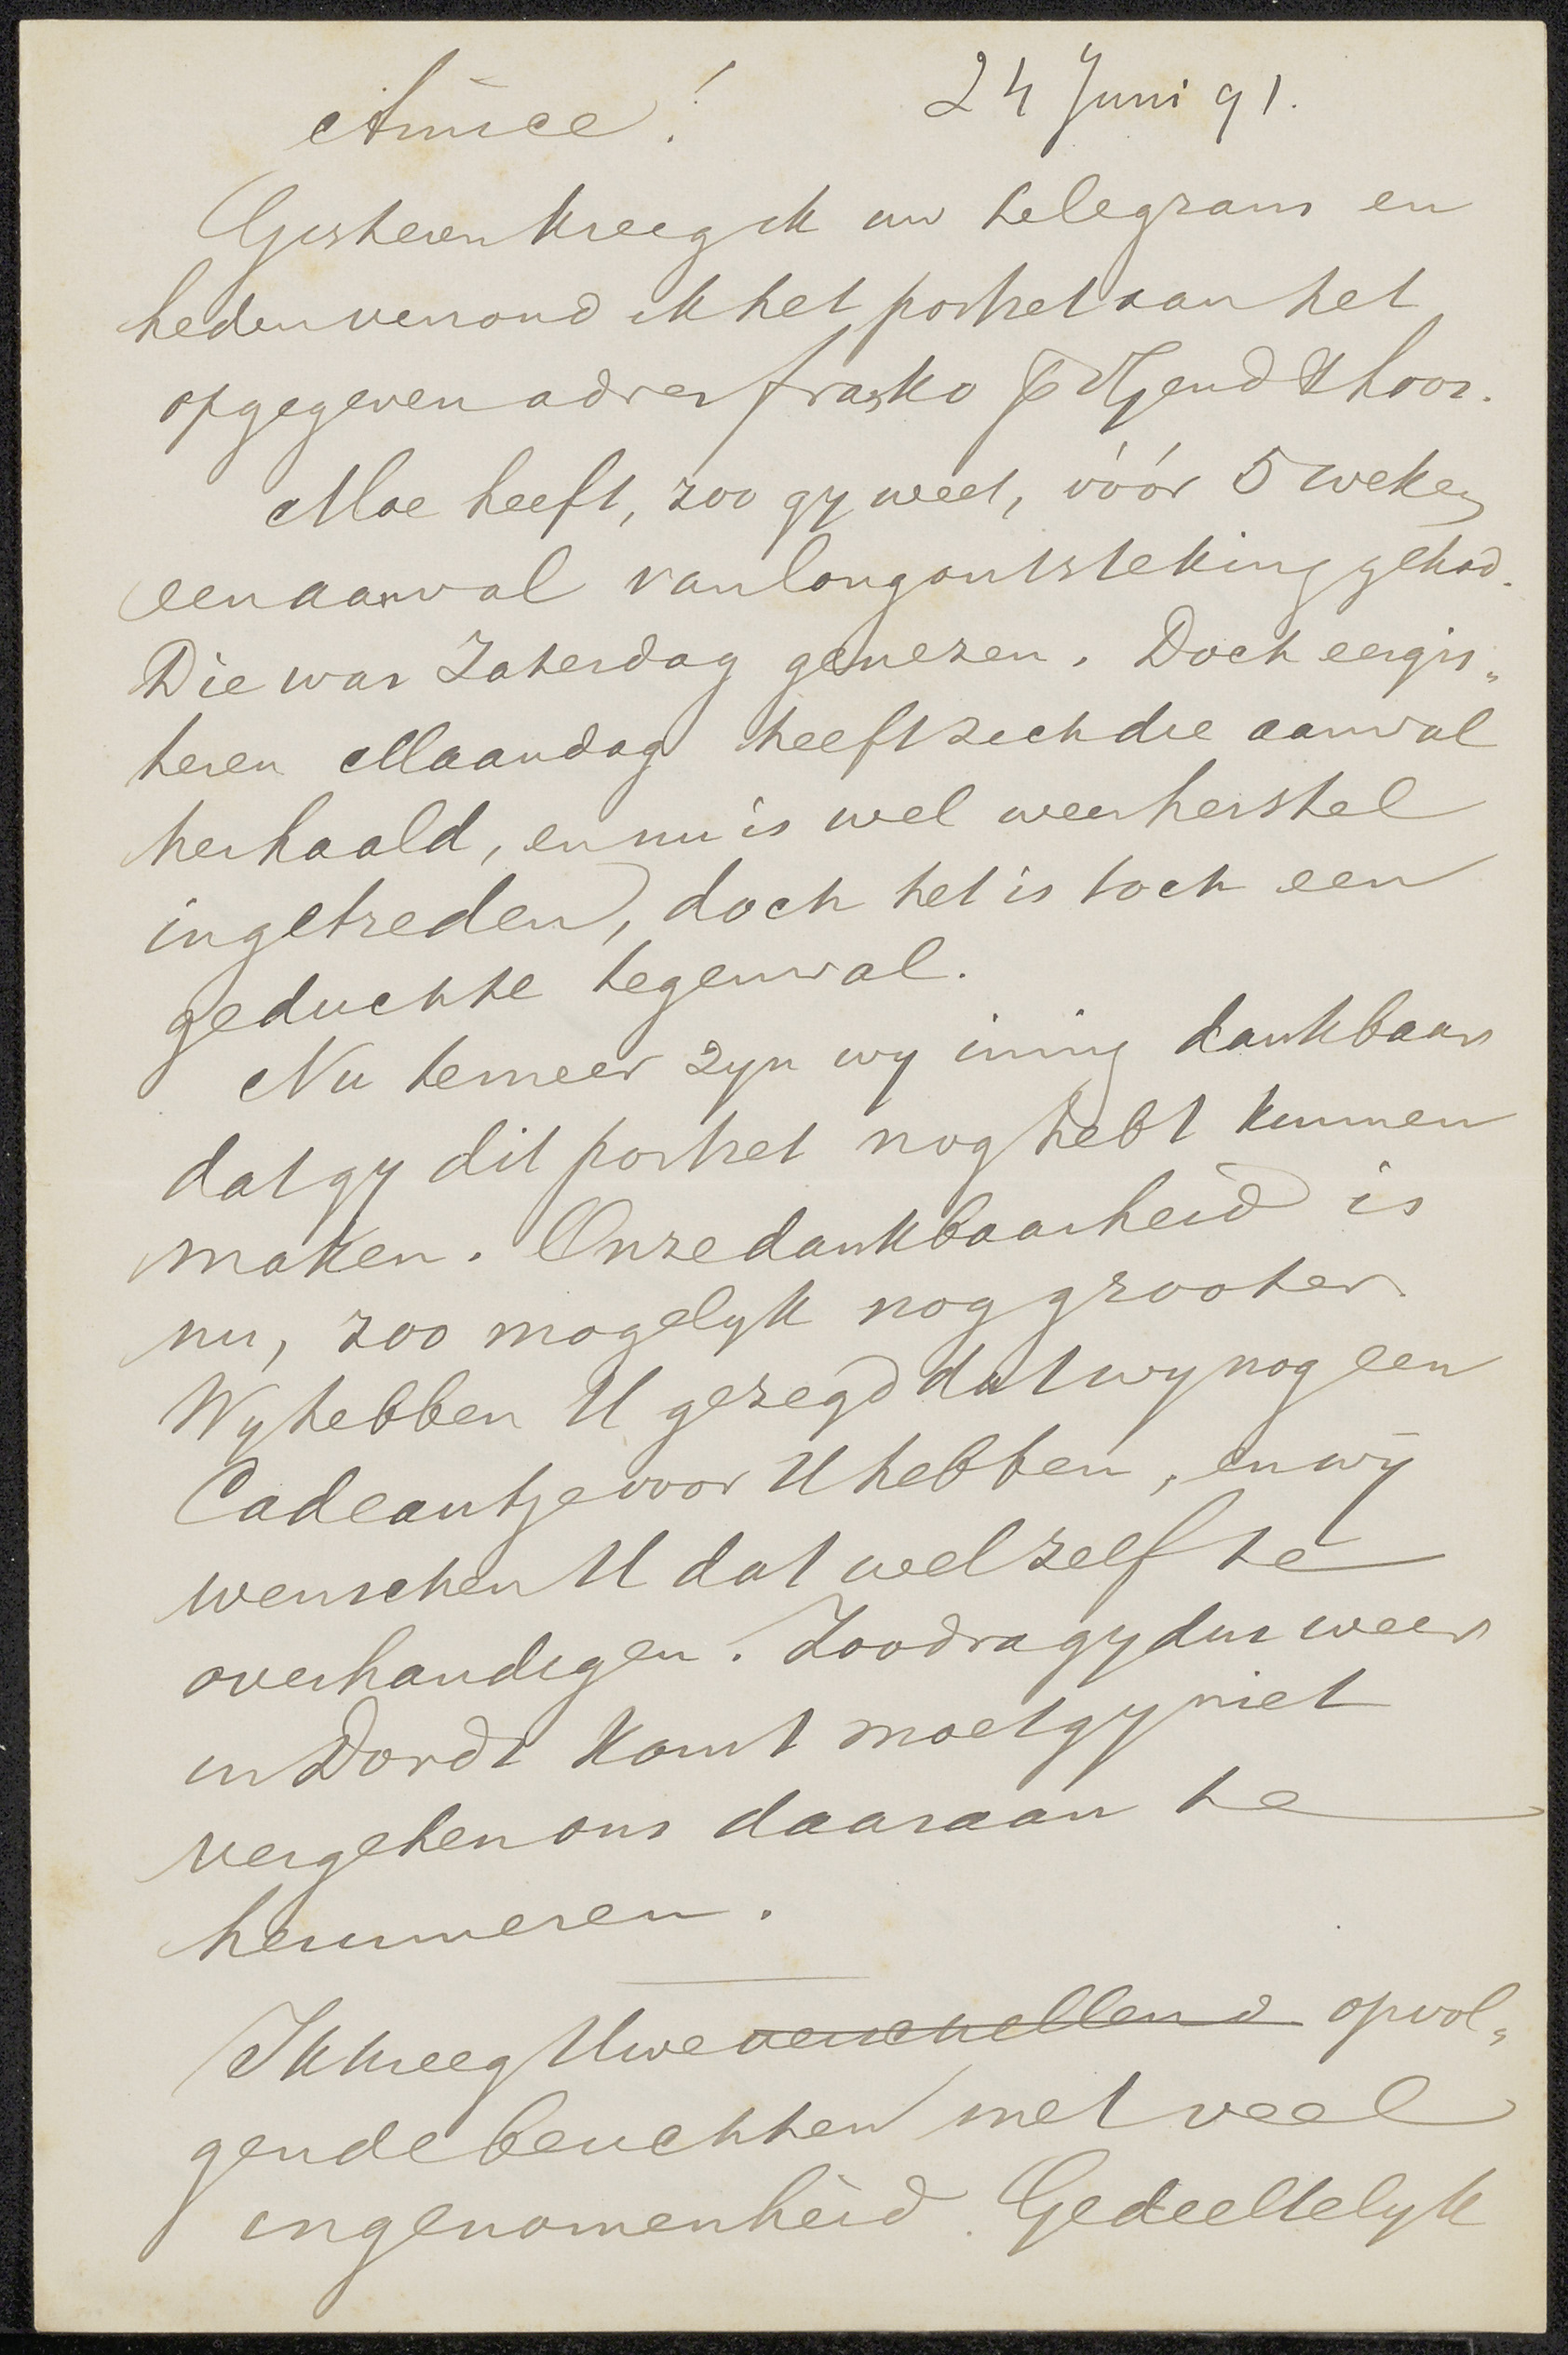 Amice! 24 Juni 91.
Gisteren kreeg ik uw telegram en
heden verzond ik het portret aan het
opgegeven adres franko p v Gend & Loos.
Moe heeft, zoo gy weet, vóór 5 weken
een aanval van longontsteking gehad.
Die was Zaterdag genezen. Doch eergis„
teren Maandag heeft zich die aanval
herhaald, en nu is wel weer herstel
ingetreden, doch het is toch een
geduchte tegenval.
Nu temeer zyn wy innig dankbaar
dat gy dit portret nog hebt kunnen
maken. Onze dankbaarheid is
nu, zoo mogelyk nog grooter.
Wy hebben U gezegd dat wy nog een
Cadeautje voor U hebben, en wij
wenschen U dat wel zelf te
overhandigen. Zoodra gy dus weer
in Dordt komt moet gy niet
vergeten ons daaraan te
herinneren.
Ik kreeg Uwe opvol„
gende berichten met veel
ingenomenheid. Gedeeltelyk